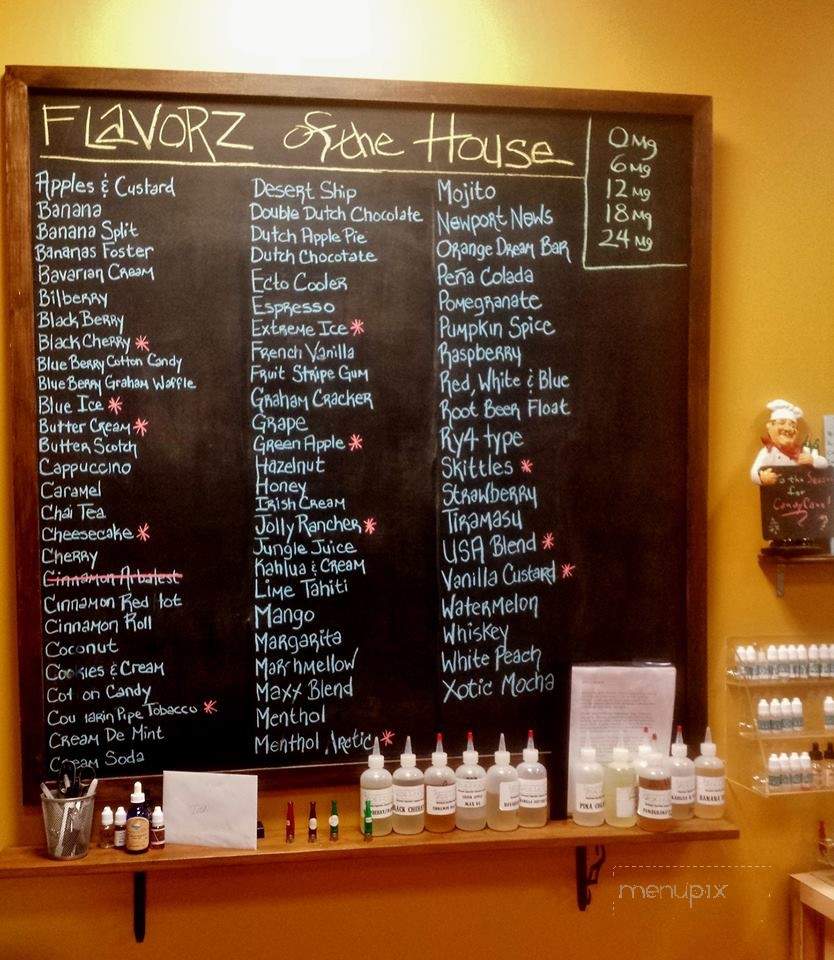 FLaVORZ of the House
0 Mg
6 Mg
12 Mg
18 Mg
24 Mg
Apples & Custard
Banana
Banana Split
Bananas Foster
Bavarian Cream
Bilberry
Black Berry
Black Cherry *
Blue Berry Cotton Candy
Blue Berry Graham Waffle
Blue Ice *
Butter Cream *
Butter Scotch
Cappuccino
Caramel
Chai Tea
Cheesecake *
Cherry
Cinnamon
Cinnamon Red Hot
Cinnamon Roll
Coconut
Cookies & Cream
Cot on Candy
Cou arin Pipe Tobacco *
Cream De Mint
Cream Soda
Desert Ship
Double Dutch Chocolate
Dutch Apple Pie
Dutch Chocotate
Ecto Cooler
Espresso
Extreme Ice *
French Vanilla
Fruit Stripe Gum
Graham Cracker
Grape
Green Apple *
Hazelnut
Honey
Irish Cream
Jolly Rancher *
Jungle Juice
Kahlua & Cream
Lime Tahiti
Mango
Margarita
Marshmellow
Maxx Blend
Menthol
Menthol Arctic *
Mojito
Newport News
Orange Dream Bar
Peña Colada
Pomegranate
Pumpkin Spice
Raspberry
Red, White & Blue
Root Beer Float
Ry4 type
Skittles *
Strawberry
Tiramasu
USA Blend *
Vanilla Custard *
Watermelon
Whiskey
White Peach
Xotic Mocha
the Season
for
Candy Cane
BLACK CHERRY
PINA
BANANA
menupix